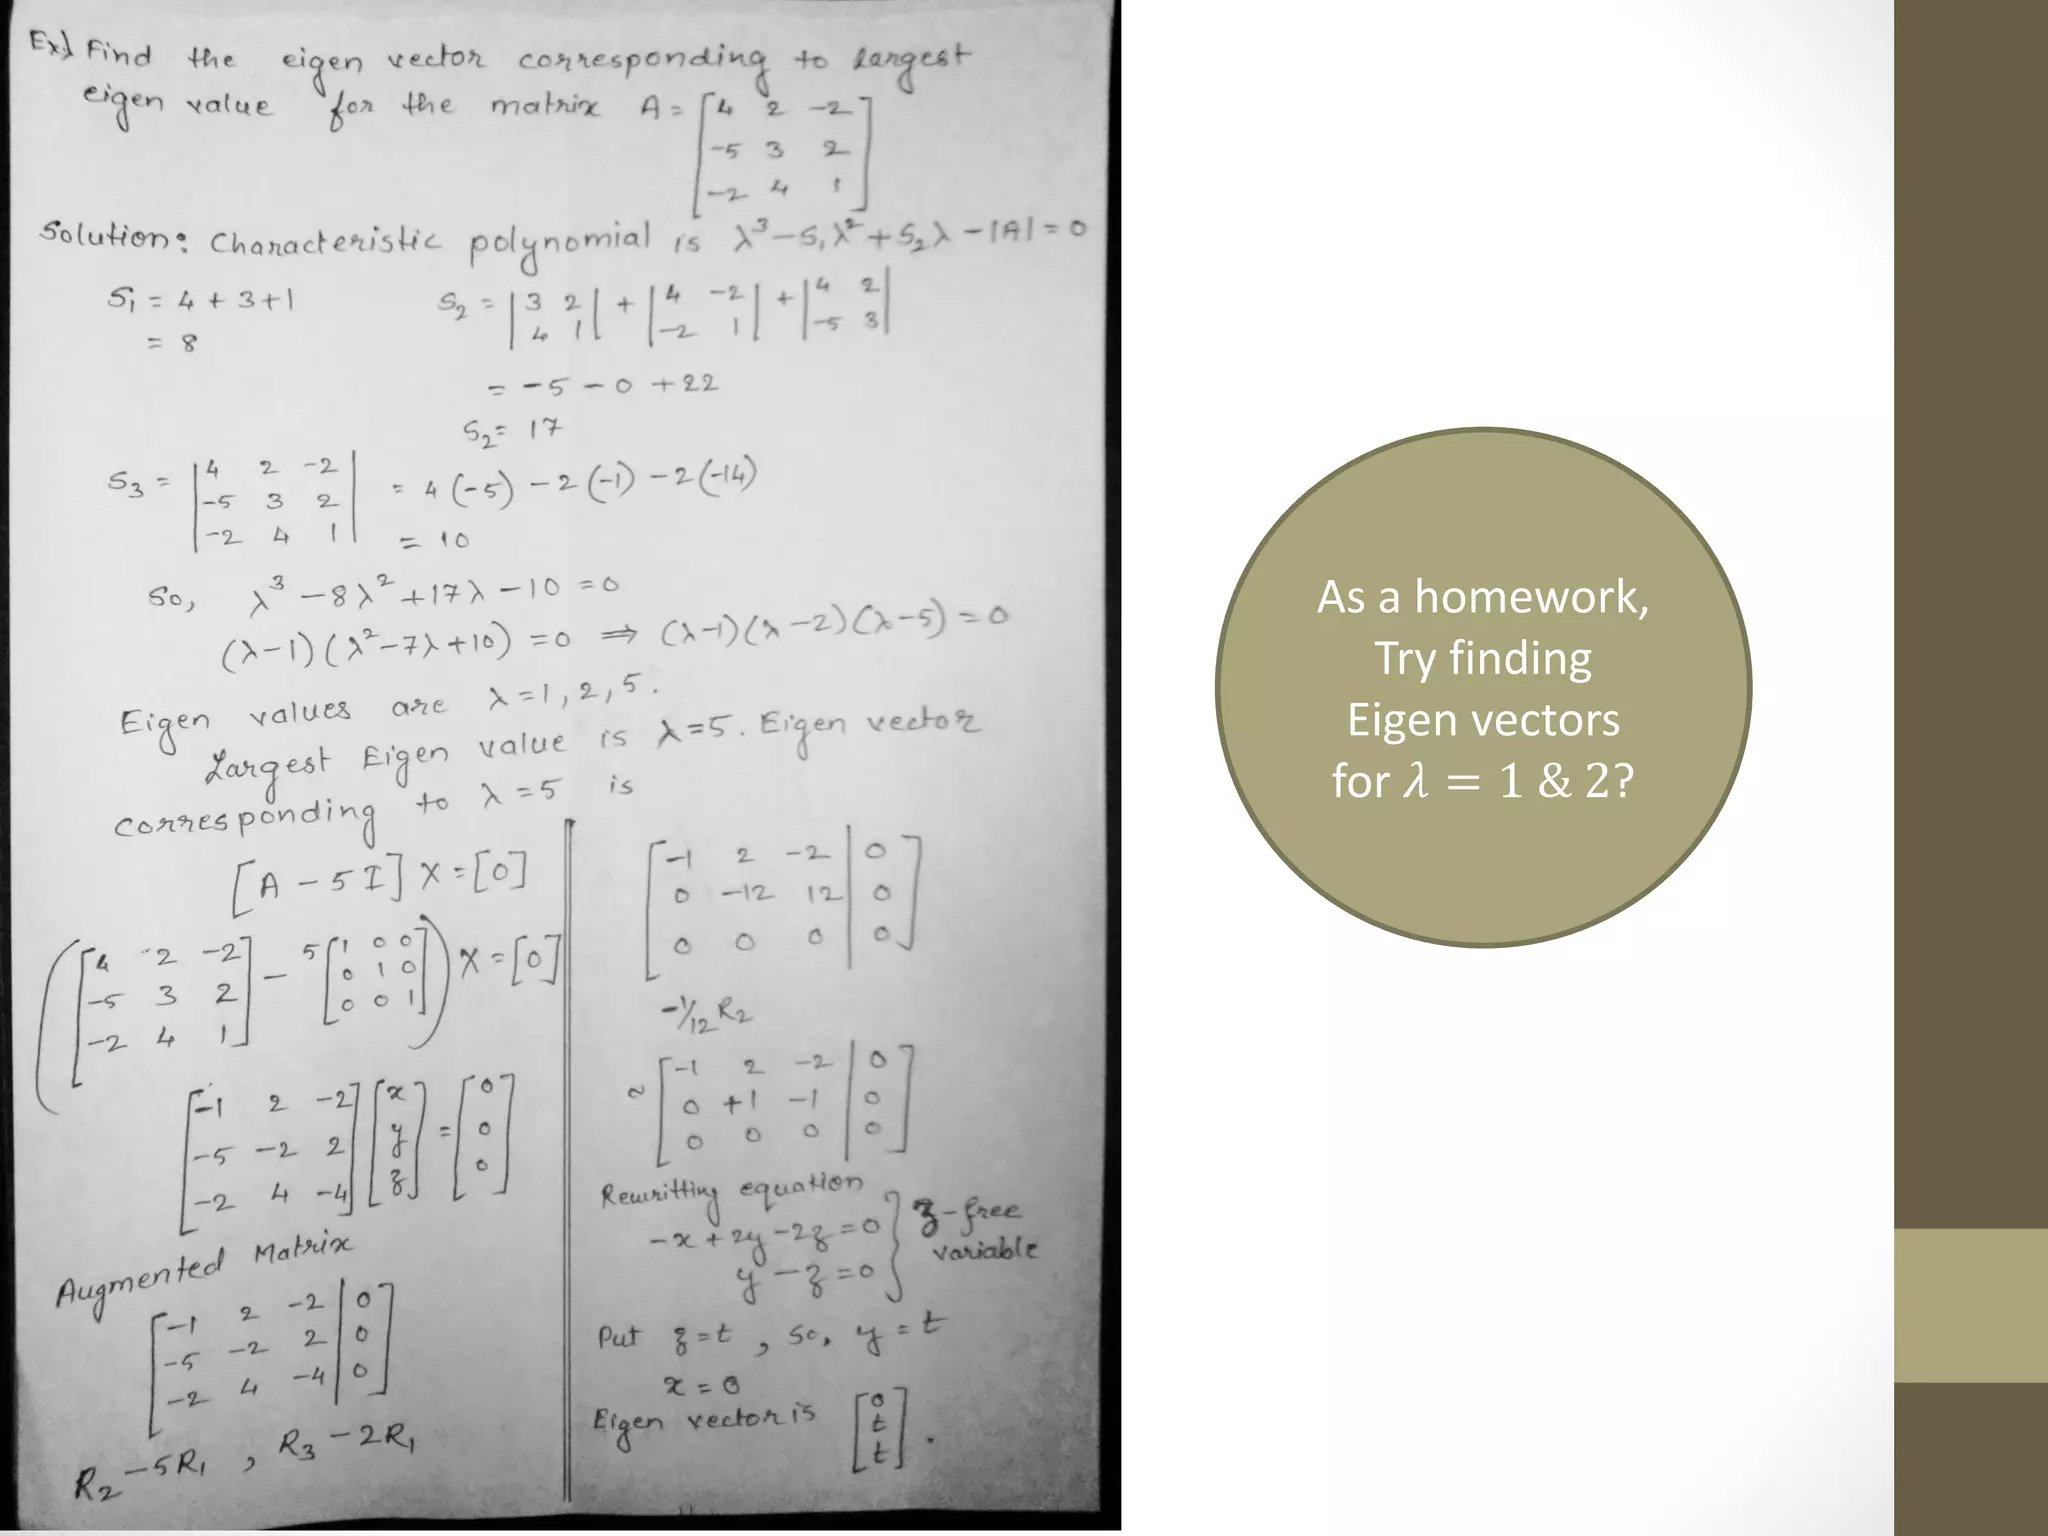 Ex) Find the eigen vector corresponding to largest
eigen value for the matrix A = [4 2 -2
-5 3 2
-2 4 1]
Solution: Characteristic polynomial is λ³ - S₁λ² + S₂λ - |A| = 0
S₁ = 4 + 3 + 1
= 8
S₂ = |3 2| + |4 -2| + |4 2|
|4 1| |-2 1| |-5 3|
= -5 - 0 + 22
S₂ = 17
S₃ = |4 2 -2|
|-5 3 2| = 4(-5) - 2(-1) - 2(-14)
|-2 4 1|
= 10
So, λ³ - 8λ² + 17λ - 10 = 0
(λ-1)(λ² - 7λ + 10) = 0 ⇒ (λ-1)(λ-2)(λ-5) = 0
Eigen values are λ = 1, 2, 5.
Largest Eigen value is λ = 5. Eigen vector
corresponding to λ = 5 is
[A - 5I] X = [0]
([4 -2 -2] - 5[1 0 0]) X = [0]
[-5 3 2] [0 1 0]
[-2 4 1] [0 0 1]
[-1 2 -2] [x] = [0]
[-5 -2 2] [y] [0]
[-2 4 -4] [z] [0]
Augmented Matrix
[-1 2 -2 | 0]
[-5 -2 2 | 0]
[-2 4 -4 | 0]
R₂ - 5R₁ , R₃ - 2R₁
[-1 2 -2 | 0]
[0 -12 12 | 0]
[0 0 0 | 0]
-1/12 R₂
~ [-1 2 -2 | 0]
[0 +1 -1 | 0]
[0 0 0 | 0]
Rewritting equation
-x + 2y - 2z = 0 } z - free
y - z = 0 variable
Put z = t , so, y = t
x = 0
Eigen vector is [0
t
t].
As a homework,
Try finding
Eigen vectors
for λ = 1 & 2?